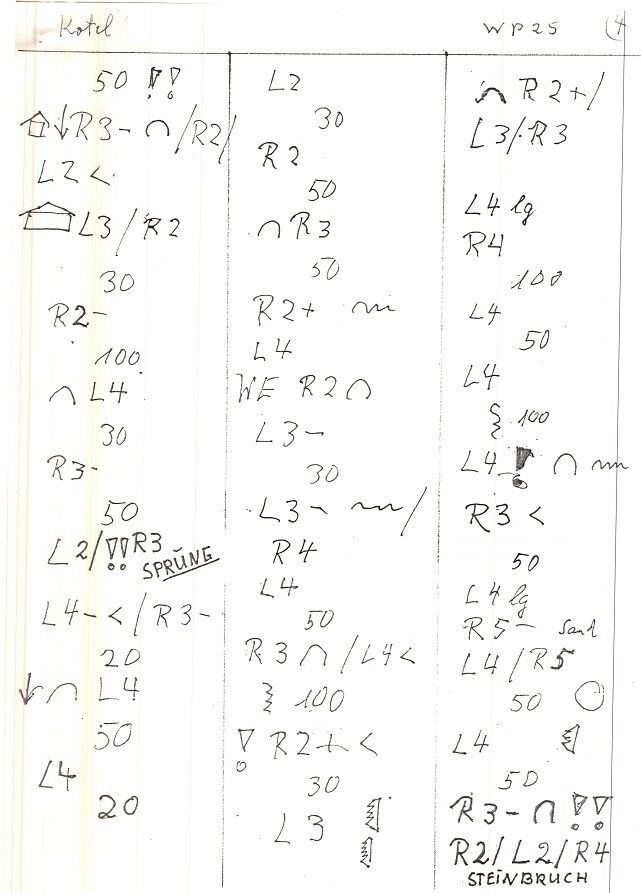 Kotel
WP25
4
50 !!
↓R3- ∩/R2/
L2 <
L3/R2
30
R2-
100
∩ L4
30
R3-
50
L2/!!R3
SPRUNG
L4- < / R3-
20
↓∩ L4
50
L4
20
L2
30
R2
50
∩ R3
50
R2+
L4
WE R2 ∩
L3-
30
L3- /
R4
L4
50
R3 ∩ /L4<
100
! R2+ <
30
L3
∩ R2+/
L3/R3
L4 lg
R4
100
L4
50
L4
100
L4 ! ∩
R3 <
50
L4 lg
R5- Sand
L4/R5
50
L4
50
R3- ∩ !!
R2/L2/R4
STEINBRUCH